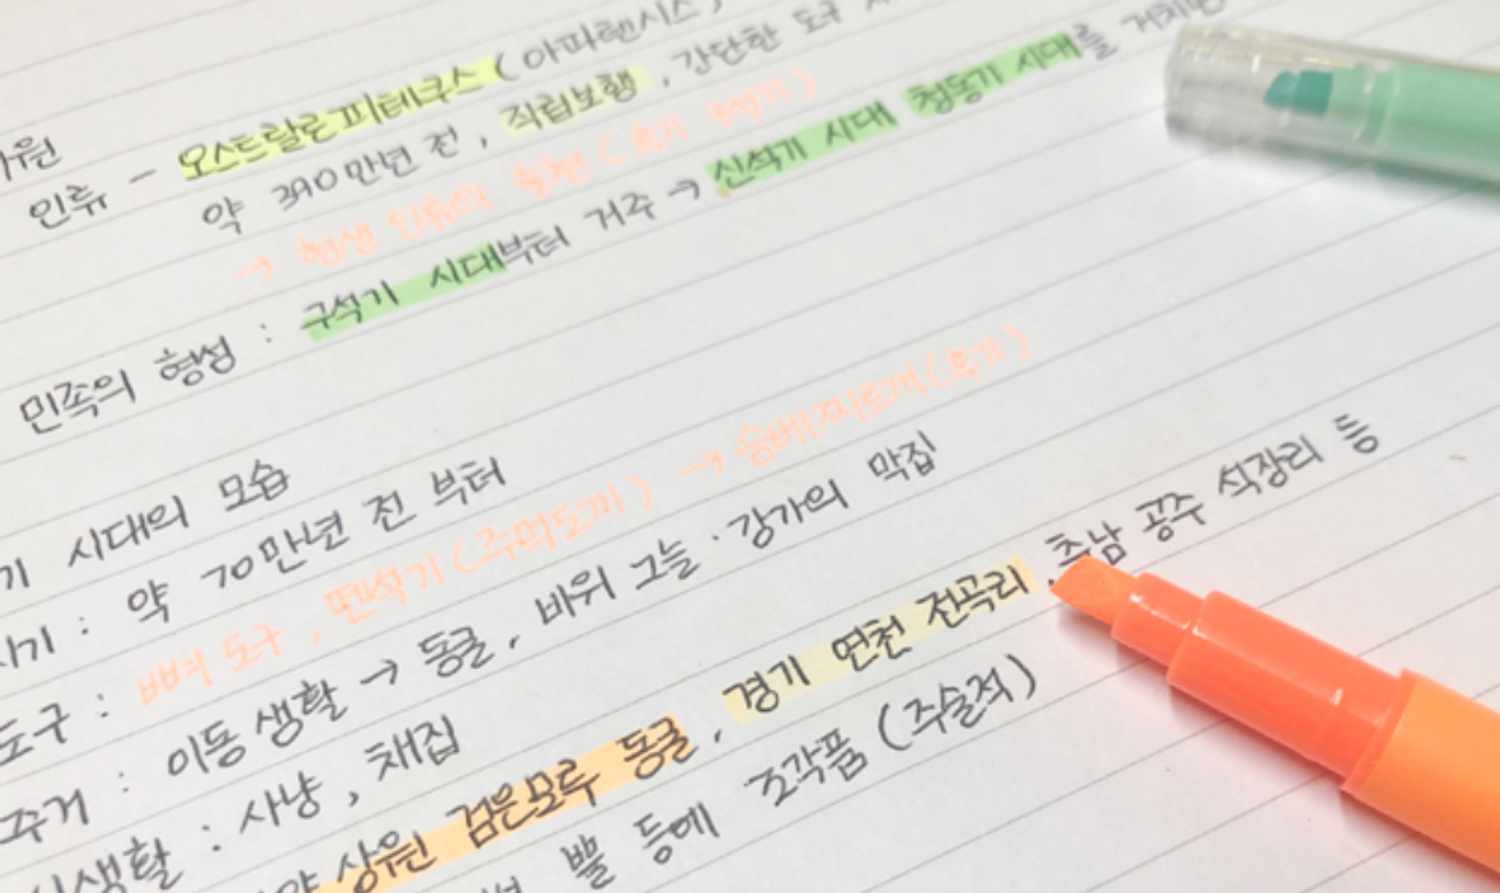 인류 - 오스트랄로피테쿠스 (아파렌시스)
약 390만년 전, 직립보행, 간단한 도구
→ 현생 인류의 출현 (후기 구석기)
민족의 형성 : 구석기 시대부터 거주 → 신석기 시대 청동기 시대를 거치면
기 시대의 모습
시기 : 약 70만년 전 부터
도구 : 뼈 도구, 뗀석기 (주먹도끼) → 슴베찌르개 (후기)
주거 : 이동 생활 → 동굴, 바위 그늘 · 강가의 막집
생활 : 사냥, 채집
상원 검은모루 동굴, 경기 연천 전곡리, 충남 공주 석장리 등
뿔 등에 조각품 (주술적)